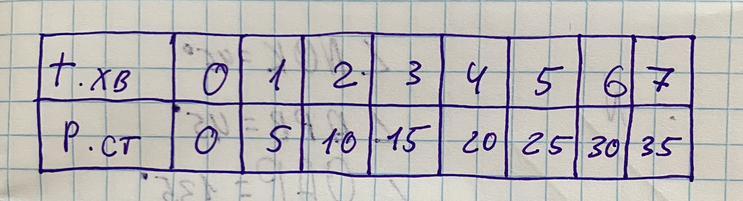 т.хв 0 1 2 3 4 5 6 7
Р.ст 0 5 10 15 20 25 30 35